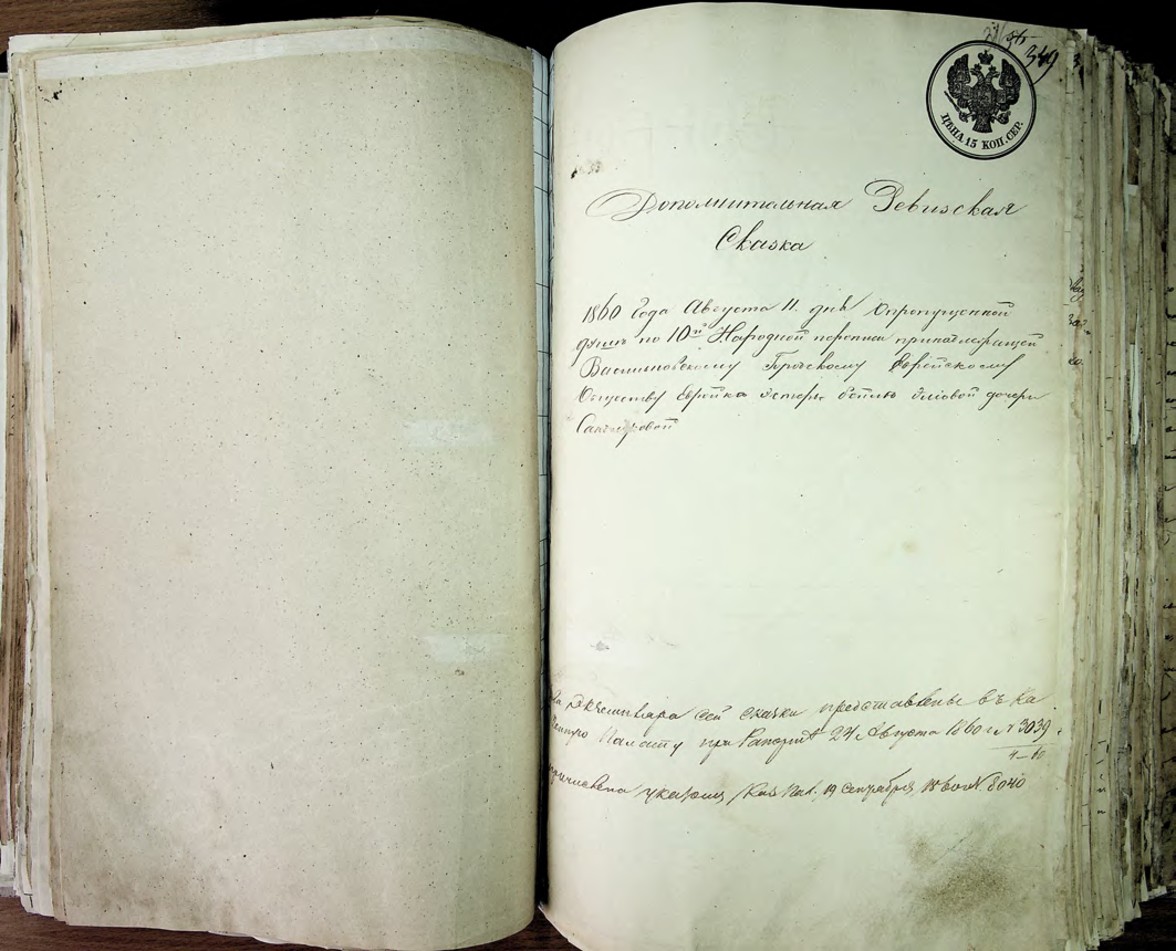 349
ЦЕНА 15 КОП. СЕР.
Дополнительная Ревизская
Сказка
1860 Года Августа 11. дня Опропущенной
душъ по 10й Народной переписи принадлежащей
Васильковскому Еврейскому
Обществу Еврейка Эстеръ Бейлю дочери
два Экземпляра сей сказки представлены въ Ка
Палату при Рапортѣ 24 Августа 1860 г № 3039.
4-10
причислена указомъ Каз Пал. 19 Сентября, 1860 г № 8040